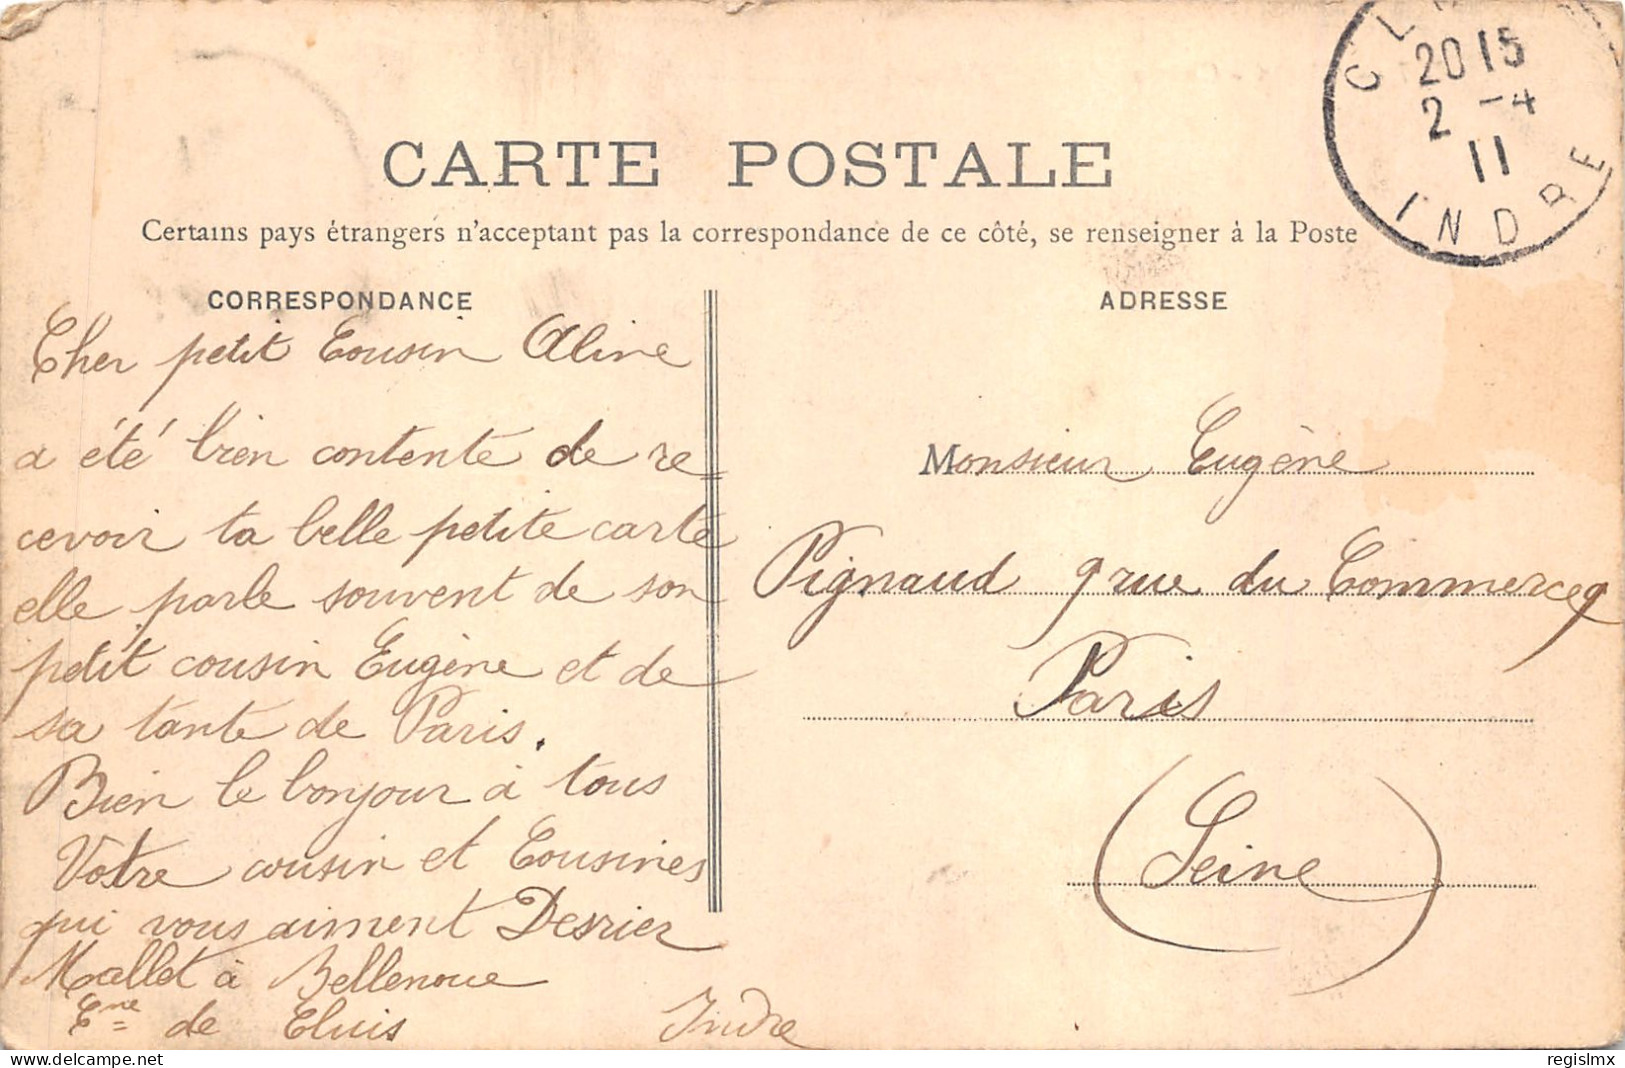 CARTE POSTALE
Certains pays étrangers n'acceptant pas la correspondance de ce côté, se renseigner à la Poste
CORRESPONDANCE
Cher petit Cousin Aline
a été bien contente de re-
cevoir ta belle petite carte
elle parle souvent de son
petit cousin Eugène et de
sa tante de Paris.
Bien le bonjour à tous
Votre cousin et Cousines
qui vous aiment Desrier
Mallet à Bellenoue
Cne de Cluis Indre
ADRESSE
Monsieur Eugène
Pignaud 9 rue du Commerce 9
Paris
(Seine)
20 15
2 -4
11
INDRE
delcampe.net
regislmx